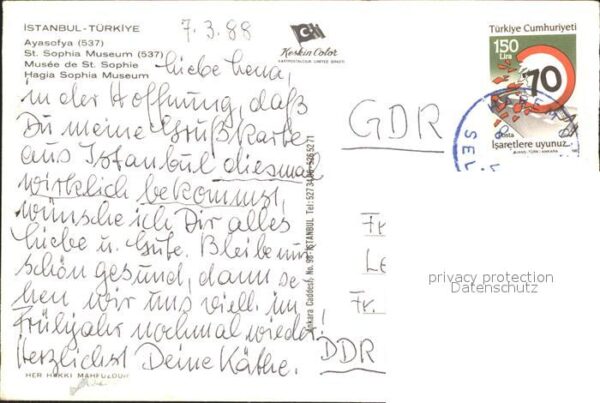 İSTANBUL-TÜRKİYE
Ayasofya (537)
St. Sophia Museum (537)
Musée de St. Sophie
Hagia Sophia Museum
7.3.88
Keskin Color
KARTPOSTALCILIK LIMITED ŞİRKETİ
Liebe Lena,
in der Hoffnung, daß
Du meine Grußkarte
aus Istanbul diesmal
wirklich bekommst,
wünsche ich Dir alles
Liebe u. Gute. Bleibe mir
schön gesund, dann se
hen wir uns viell. im
Frühjahr nochmal wieder!
Herzlichst Deine Käthe.
HER HAKKI MAHFUZDUR
Ankara Caddesi, No. 98 İSTANBUL Tel:
GDR
Fr
Le
Fr.
DDR
Türkiye Cumhuriyeti
150
Lira
70
posta
İşaretlere uyunuz...
SEL
privacy protection
Datenschutz